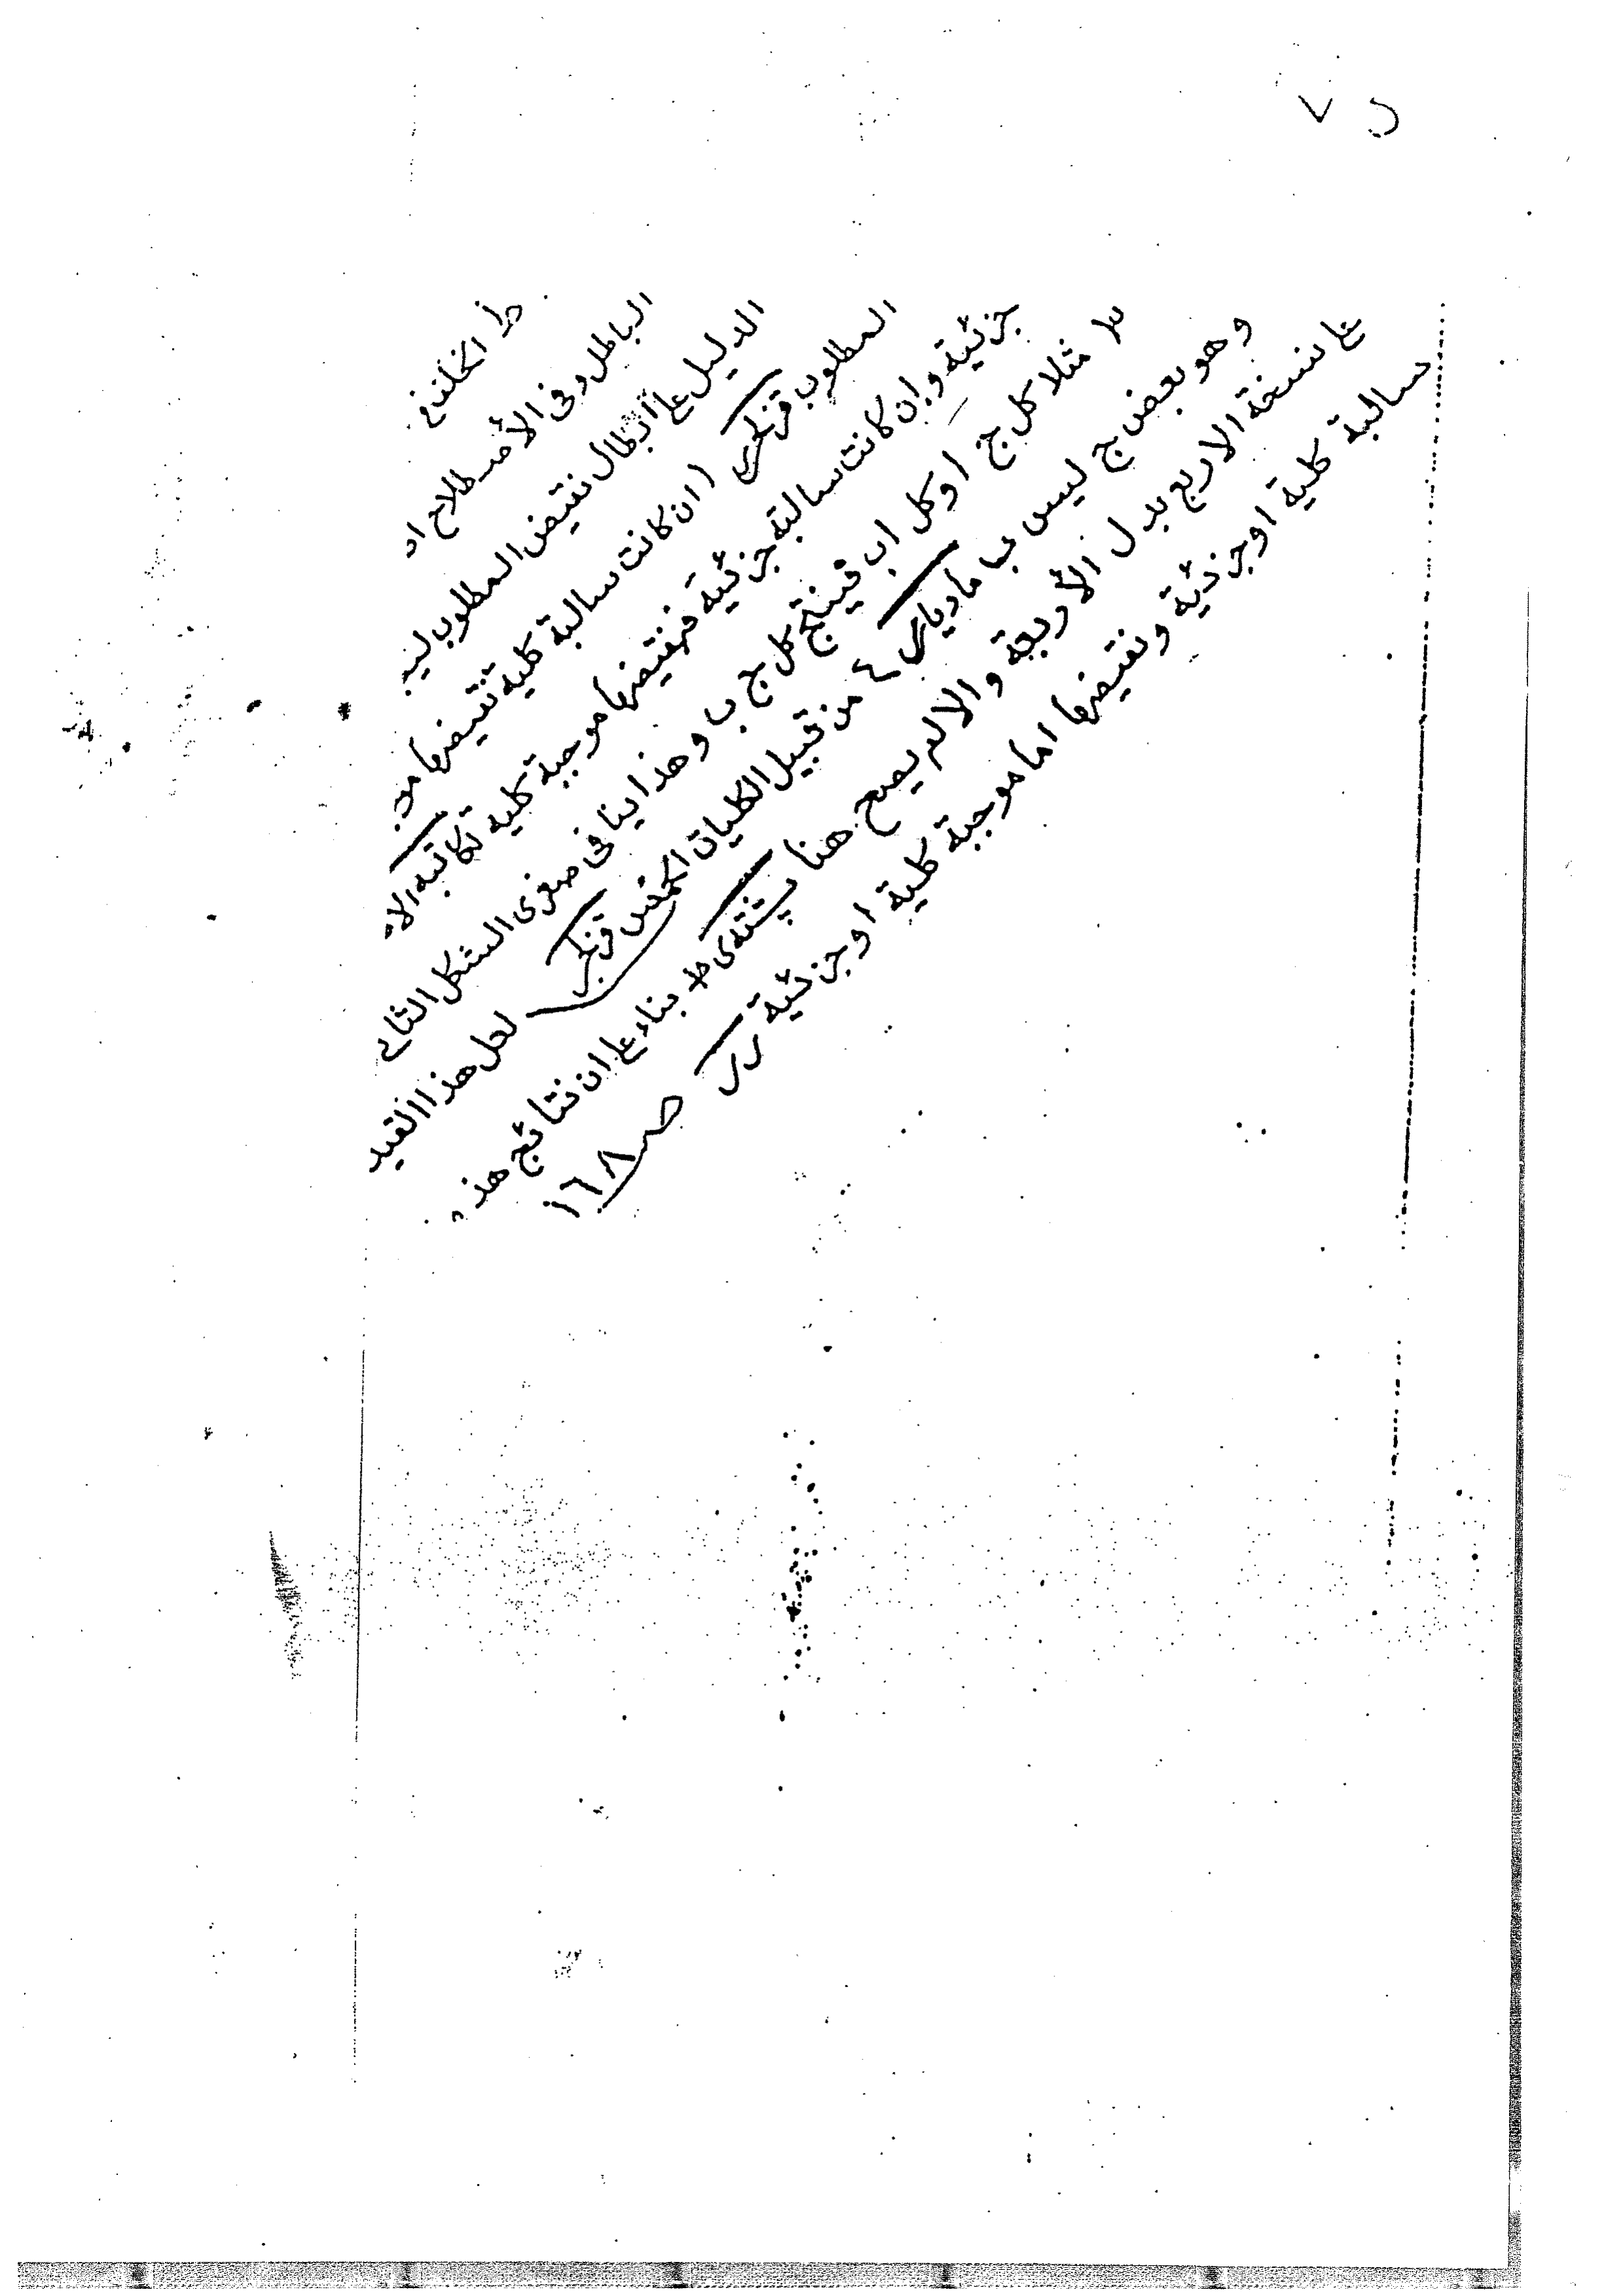 ٧٥
ط الخلف في
الباطل وفى الأصطلاح اد
الدليل ع ابطال نقيض المطلوب ليذ
المطلوب قزلجى (ان كانت سالبة كلية نقيضها مو
جزئية وان كانت سالبة جزئية فنقيضها موجبة كلية تكاتبه الا
٣ مثلا كل ج ا وكل اب فينتج كل ج ب وهذا ينافى صغرى الشكل الثانى
وهو بعض ج ليس ب مادياى ٤ من قبيل الكليات الخمس قزلجى لعل هذا القيد
ع نسخة الاربع بدل الأربعة والا لم يصح هنا پشتدى ط بناء ع ان نتائج هذه
سالبة كلية او جزئية ونقيضها اما موجبة كلية او جزئية رر ص ١٦٨